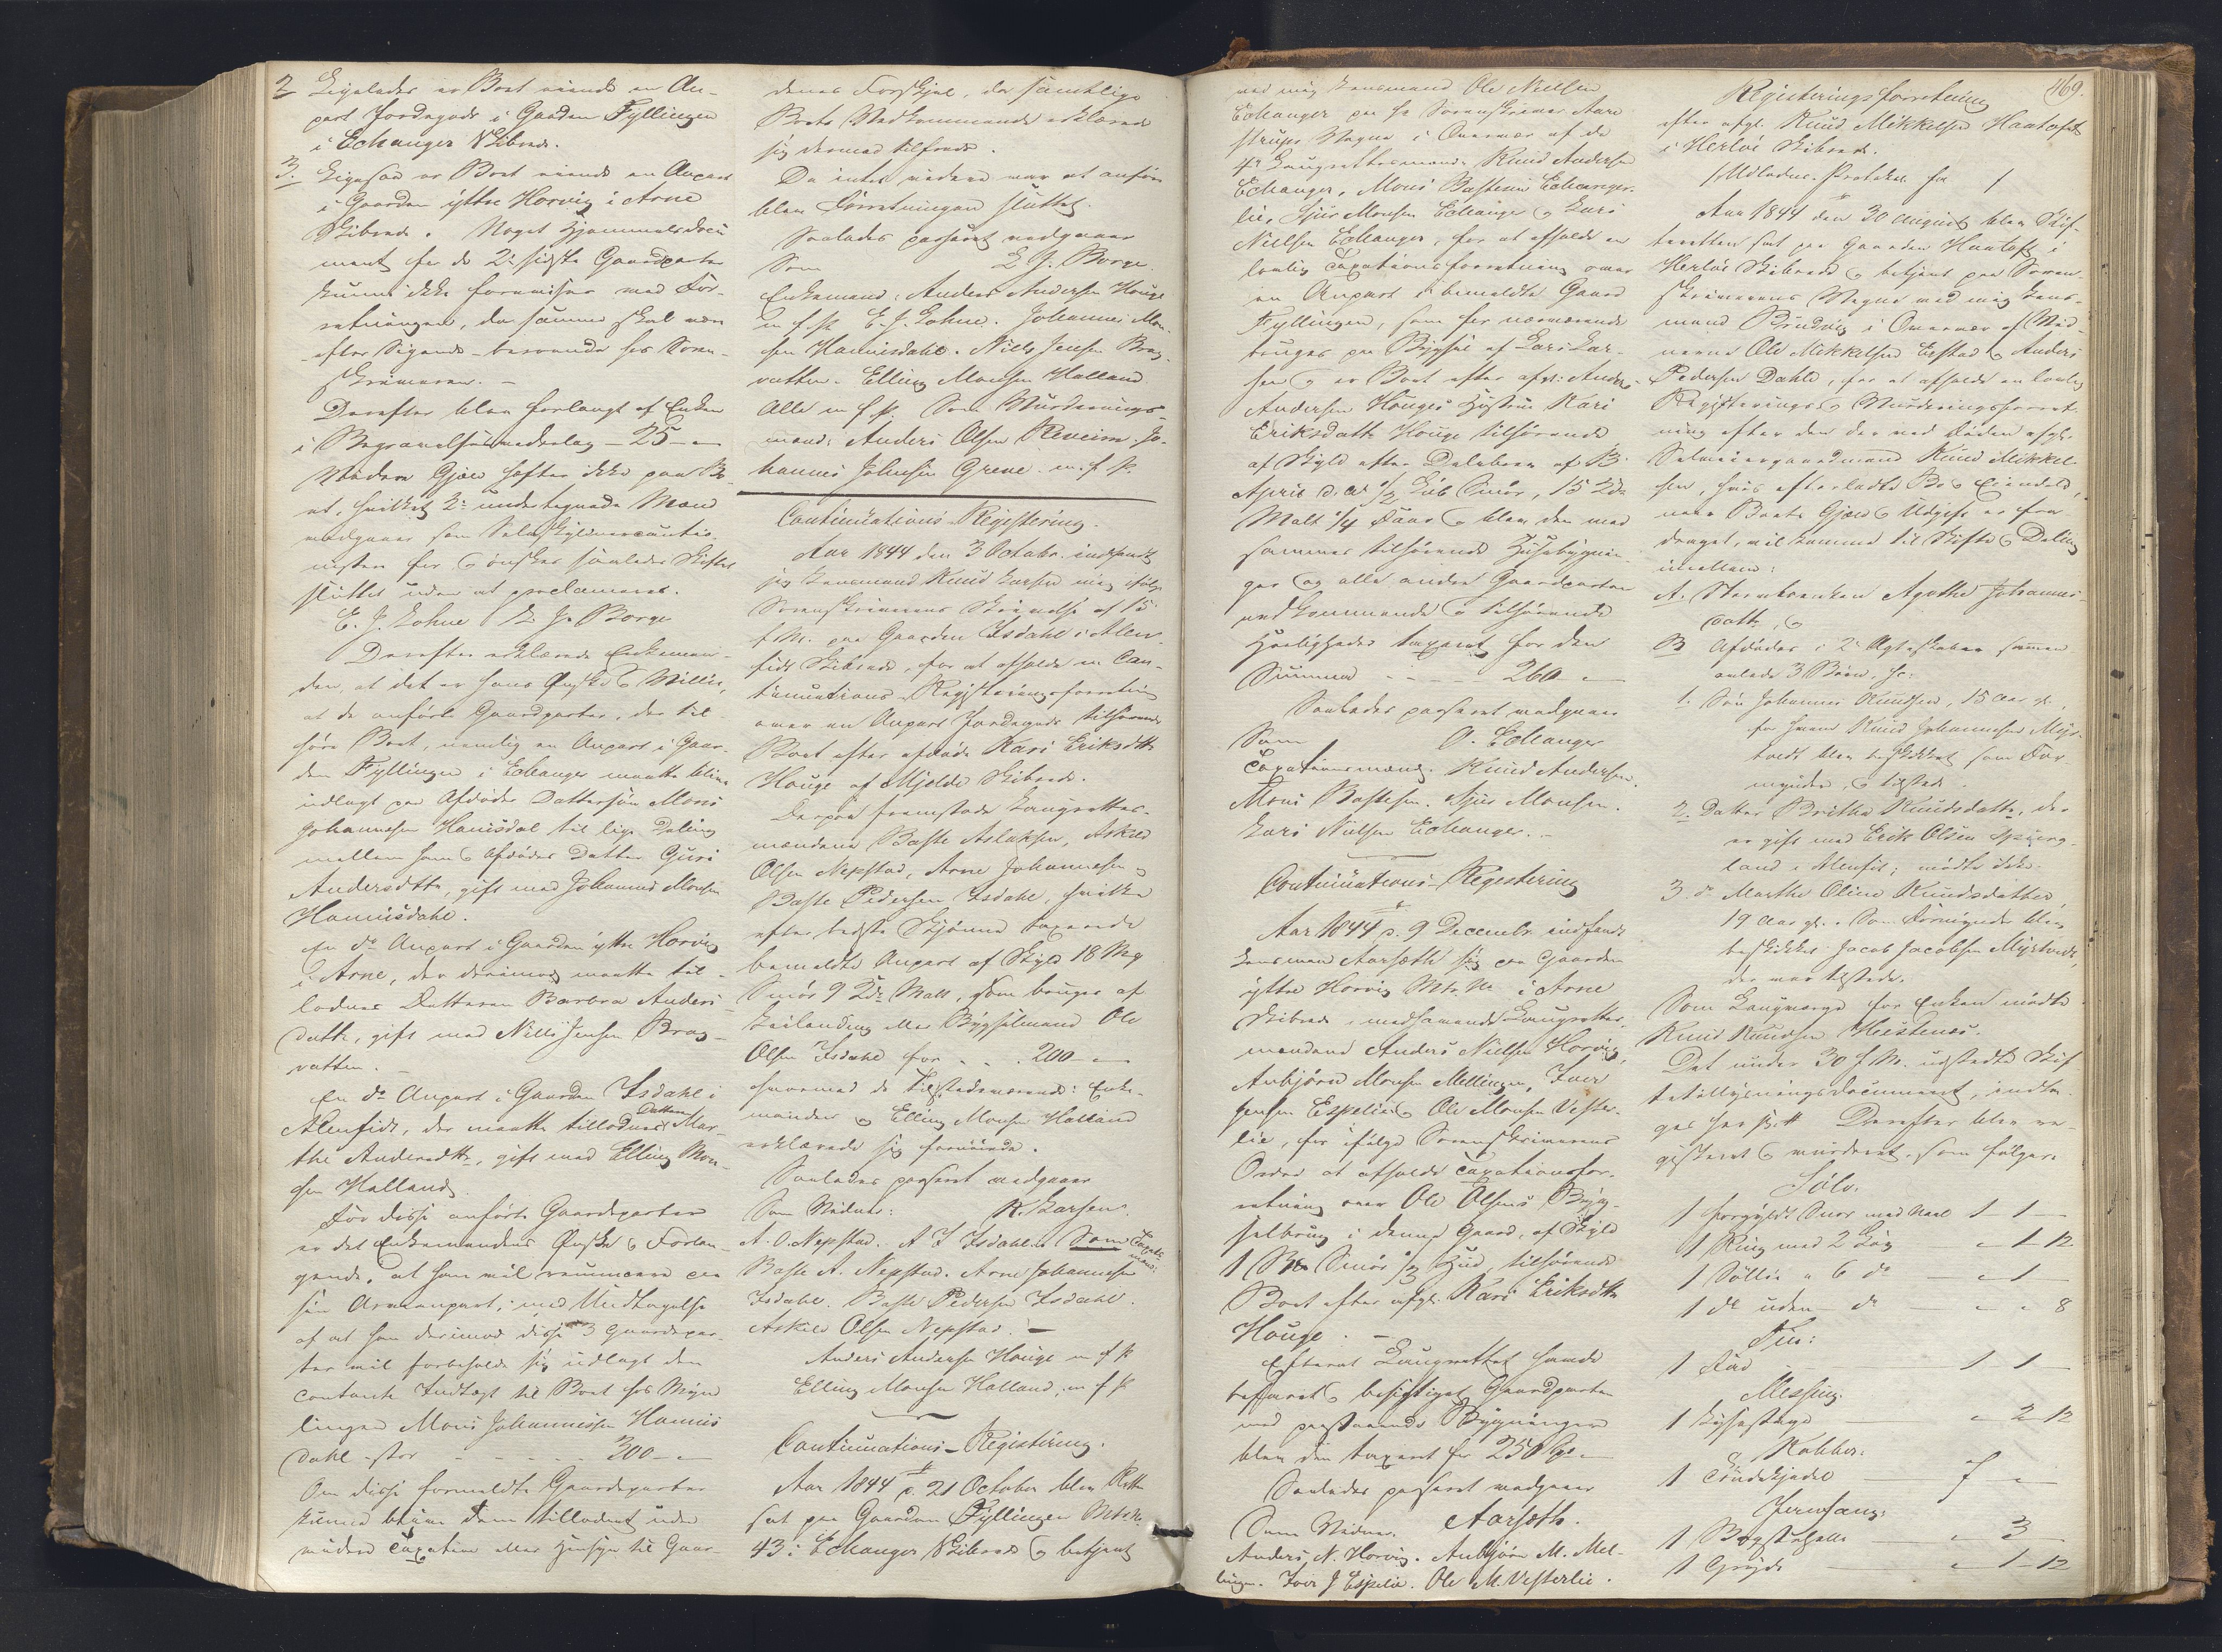 2 Ligeledes er Boet eiende en An-
part Jordegods i Gaarden Fyllingen
i Echanger Skibrede.
3. Ligesaa er Boet eiende en Anpart
i Gaarden yttre Horvig i Arne
Skibrede. Noget Hjemmelsdocu
ment for de 2de sidste Gaardparter
kunne ikke foreviises ved For-
retningen, da samme skal være
efter Sigende beroende hos Soren-
skriveren. -
Derefter blev forlangt af Enken
i Begravelsesvederlag - 25 -
Videre Gjæld hefter ikke paa Bo-
et, hvilket 2de undertegnede Mænd
vedgaaer som Selvskyldnercautio-
nister for & ønsker saaledes Skiftet
sluttet uden at proclameres.
E. J. Lohne L. J. Borge
Derefter erklærede Enkeman-
den, at det er hans Ønske & Villie,
at de anførte Gaardparter, der til-
hører Boet, nemlig en Anpart i Gaar-
den Fyllingen i Echanger maatte blive
udlagt paa Afdødes Dattersøn Mons
Johannesen Hanisdal til lige Deling
mellem ham & Afdødes Datter Guri
Andersdttr, gift med Johannes Monsen
Hannisdahl.
En do Anpart i Gaarden yttre Horvig
i Arne, der derimod maatte til-
lodnes Datteren Barbra Anders-
datter, gift med Nills Jensen Brag-
vatten.
En do Anpart i Gaarden Isdahl i
Alenfidt, der maatte tillodnes Datteren Mar-
the Andersdttr, gift med Elling Mon-
sen Halland.
For disse anførte Gaardeparter
er det Enkemandens Ønske & Forlan-
gende, at han vil renuncere paa
sin Arveanpart; med Undtagelse
af at han derimod disse 3 Gaardepar-
ter vil forbeholde sig udlagt den
contante Indtægt til Boet hos Mynd
lingen Mons Johannessen Hannis
dahl - stor - - - - 300 -
Om disse formeldte Gaardeparter
kunne blive dem tillodnet uden
videre Taxation eller Hensyn til Gaar-
denes Forskjel, da samtlige
Boets Vedkommende erklærede
sig dermed tilfreds.
Da intet videre var at anføre
blev Forretningen sluttet.
Saaledes passeret vedgaaer
Som L. J. Borge.
Enkemand: Anders Andersen Houge
m. f. P. E. J. Lohne. Johannes Mon-
sen Hannisdahl. Niels Jensen Brag-
vatten. Elling Monsen Halland
Alle m f. P. Som Vurderings-
mænd: Anders Olsen Reveim. Jo-
hannes Johnsen Greve. m. f. P.
Continuations-Registering.
Aar 1844 den 3 Octobr. indfandt
jeg Lensmand Knud Larsen mig ifølge
Sorenskriverens Skrivelse af 15
f. M. paa Gaarden Isdahl i Alen-
fidt Skibrede, for at afholde en Con-
tinuations-Registeringsforretning
over en Anpart Jordegods tilhørende
Boet efter afdøde Kari Eriksdttr
Houge af Mjelde Skibrede.
Derpaa fremstode Laugrettes-
mændene Baste Aslaksen, Askild
Olsen Nepstad, Arne Johannesen &
Baste Pedersen Isdahl, hvilke
efter bedste Skjønne taxerede
bemeldte Anpart af Skyld 18 Mg
Smør 9 Kdr Malt, som bruges af
Leilending eller Bygselmand Ole
Olsen Isdahl for - - 200 -
hvormed de Tilstedeværende: Enke-
manden & Elling Monsen Halland
erklærede sig fornøiede.
Saaledes passeret vedgaaer
Som Vidner: K. Larsen.
A. O. Nepstad. A J Isdahl. Som Taxati mænd:
Baste A. Nepstad. Arne Johannesen
Isdahl. Baste Pedersen Isdahl.
Askild Olsen Nepstad. -
Anders Andersen Houge m f P
Elling Monsen Halland, m f P
Continuations-Registering.
Aar 1844 d. 21 October blev Retten
sat paa Gaarden Fyllingen Mtr No
43 i Echanger Skibrede & betjent
ved mig Lensmand Ole Nielsen
Echanger paa Hr Sorenskriver Aare
strups Vegne i Overvær af de
4re Laugrettesmænd Knud Andersen
Echanger, Mons Bastesen Echanger-
lie, Sjur Monsen Echanger & Lars
Nielsen Echanger, for at afholde en
lovlig Taxationsforretning over
en Anpart i bemeldte Gaard
Fyllingen, som for nærværende
bruges paa Bygsel af Lars Lar-
sen & er Boet efter afgl: Anders
Andersen Houges Hustrue Kari
Eriksdattr Houge tilhørende,
af Skyld efter Delebrev af 13
April d. A. 1/2 Løb Smør, 15 Kdr
Malt 1/4 Faar & blev den med
sammes tilhørende Huusbygnin-
ger og alle andre Gaardparten
vedkommende & tilhørende
Herligheder taxeret for den
Summa - - - 260 -
Saaledes passeret vedgaaer
Som O. Echanger
Taxationsmænd. Knud Andersen.
Mons Bastesen. Sjur Monsen.
Lars Nielsen Echanger. -
Continuations-Registering
Aar 1844 d. 9 Decembr. indfandt
Lensmand Aarseth sig paa Gaarden
yttre Horvig Mtr. No i Arne
Skibrede, medhavende Laugrettes-
mændene Anders Nielsen Horvig,
Anbjørn Monsen Mellingen, Iver
Jensen Espelie & Ole Monsen Vester-
lie, for ifølge Sorenskriverens
Ordre at afholde Taxationsfor-
retning over Ole Olsens Byg-
selbrug i denne Gaard, af Skyld
1 Smør 1/2 Hud, tilhørende
Boet efter afgl. Kari Eriksdttr
Houge. -
Efterat Laugrettet havde
befaret & besigtiget Gaardparten
med paastaaende Bygninger
blev den taxeret for 250 Spd. -
Saaledes passeret vedgaaer
Som Vidner. Aarseth.
Anders N. Horvig. Anbjørn M. Mel-
lingen. Iver J Espelie. Ole M. Vesterlie.
469.
Registeringsforretning
efter afgl. Knud Mikkelsen Haatoft
i Herløe Skibrede.
Aar 1844 den 30 August blev Skif-
teretten sat paa Gaarden Haatoft i
Herløe Skibrede & betjent paa Soren-
skriverens Vegne ved mig Lens-
mand Brudvig i Overvær af Vid-
nerne Ole Mikkelsen Erstad & Anders
Pedersen Dahle, for at afholde en lovlig
Registerings & Vurderingsforret-
ning efter den der ved Døden afgl.
Selveiergaardmand Knud Mikkel-
sen, hvis efterladte Bo & Eiendele,
naar Boets Gjæld & Udgift er fra-
draget, vil komme til Skifte & Deling
imellem:
A. Stervboenken Agathe Johannes-
dattr, &
B Afdødes i 2de Ægteskaber sammen-
avlede 3 Børn. sc:
1. Søn Johannes Knudsen, 15 Aar gl.
for hvem Knud Johannesen Myr-
tvedt blev beskikket som For-
mynder, & tilstede.
2. Datter Brithe Knudsdattr, der
er gift med Erik Olsen
land i Alenfit; mødte ikke.
3 do Marthe Oline Knudsdatter,
19 Aar gl. Som Formynder blev
beskikket Jacob Jacobsen Myrtvedt,
der var tilstede.
Som Laugværge for Enken mødte
Knud Knudsen
Det under 30 f. M. udstedte Skif
tetillysningsdocument, indta-
ges her s. # Derefter blev re-
gisteret & vurderet, som følger:
Sølv.
1 forgyldt Snor med Naal 1 - 1 -
1 Ring med 2 Løv " - 1 - 12
1 Søllie " 6 do - " - 1 -
1 do uden - do - " - " 8
Tin:
1 Fad - 1 - 1 -
Messing.
1 Lysestage - " - 2 - 12
Kobber:
1 Tøndekjedel
Jernfang:
1 Bagsthelle - " - 3
1 Gryde - " - 1 - 12